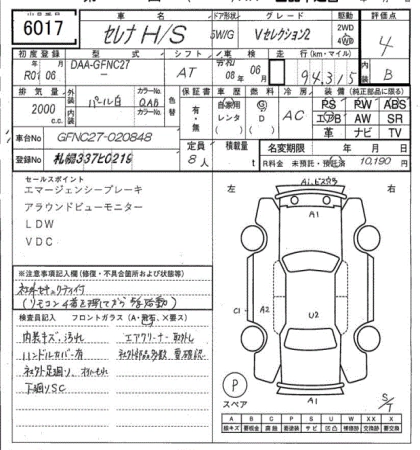 6017
車名
ドア形状
グレード
駆動
評価点
セレナ H/S
5W/G
Vセレクション2
2WD
4WD
4
初度登録
型式
シフト
車検
走行(km・マイル)
内装
年 月
R01 08
DAA-GFNC27
AT
年 月
08 08
94,315
B
排気量
外装
色替
保証書
車歴
燃料
冷房
装備(純正部品に限る)
2000
c.c.
パール白
QAB
有・無
自家用
レンタ
G
D
AC
PS PW ABS
エアB AW SR
革 ナビ TV
車台No
GFNC27-020848
定員
積載量
名変期限 年 月 日
登録No
札幌337ヒ0219
8人
t
R料金 未預託・預託済 10,190 円
セールスポイント
エマージェンシーブレーキ
アラウンドビューモニター
LDW
VDC
左
右
A1
C1
A2
U2
A1
※注意事項記入欄(修復・不具合箇所および状態等)
社外セキュリティ付
(リモコン4番を押してから始動)
検査員記入
フロントガラス(A・飛石、×要ス)
内装キズ、汚れ
エアクリーナー取外し
ハンドルカバー有
社外部品多数 要確認
社外足廻り、
下廻りSC
P
スペア
S/T
A B C P S U W X XX
線キズ 要鈑金 腐蝕 要塗装 サビ 凹凸 補修跡 交換跡 要交換